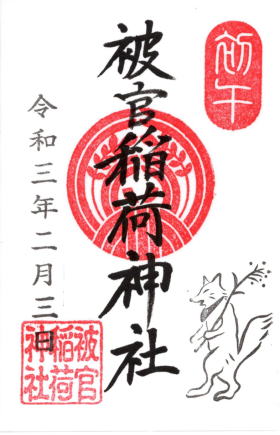 初午
被官稲荷神社
令和三年二月三日
被官
稲荷
神社